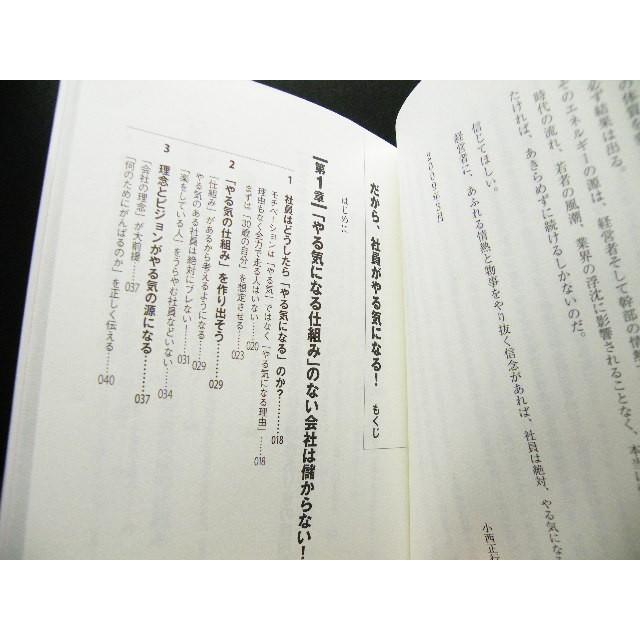 必ず結果は出る。
そのエネルギーの源は、経営者そして幹部の情
時代の流れ、若者の風潮、業界の浮沈に影響されることなく、本
たければ、あきらめずに続けるしかないのだ。
信じてほしい。
経営者に、あふれる情熱と物事をやり抜く信念があれば、社員は絶対、やる気にな
小西正行
だから、社員がやる気になる! もくじ
はじめに
第1章 「やる気になる仕組み」のない会社は儲からない!
1 社員はどうしたら「やる気になる」のか?………018
モチベーションは「やる気」ではなく「やる気になる理由」……018
理由もなく全力で走る人はいない……020
まずは「30歳の自分」を想定させる……023
2 「やる気の仕組み」を作り出そう………029
「仕組み」があるから考えるようになる……029
やる気のある社員は絶対にブレない!……031
「楽をしている人」をうらやむ社員などいない……034
3 理念とビジョンがやる気の源になる………037
「会社の理念」が大前提……037
「何のためにがんばるのか」を正しく伝える……040